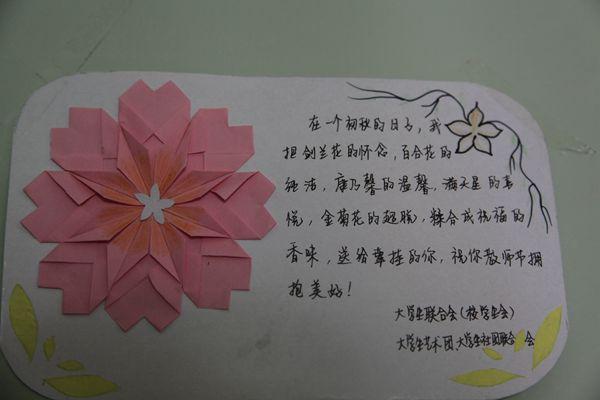 在一个初秋的日子，我
把剑兰花的怀念，百合花的
纯洁，康乃馨的温馨，满天星的喜
悦，金菊花的超脱，糅合成祝福的
香味，送给牵挂的你，祝你教师节拥
抱美好！
大学生联合会（校学生会）
大学生艺术团、大学生社团联合会